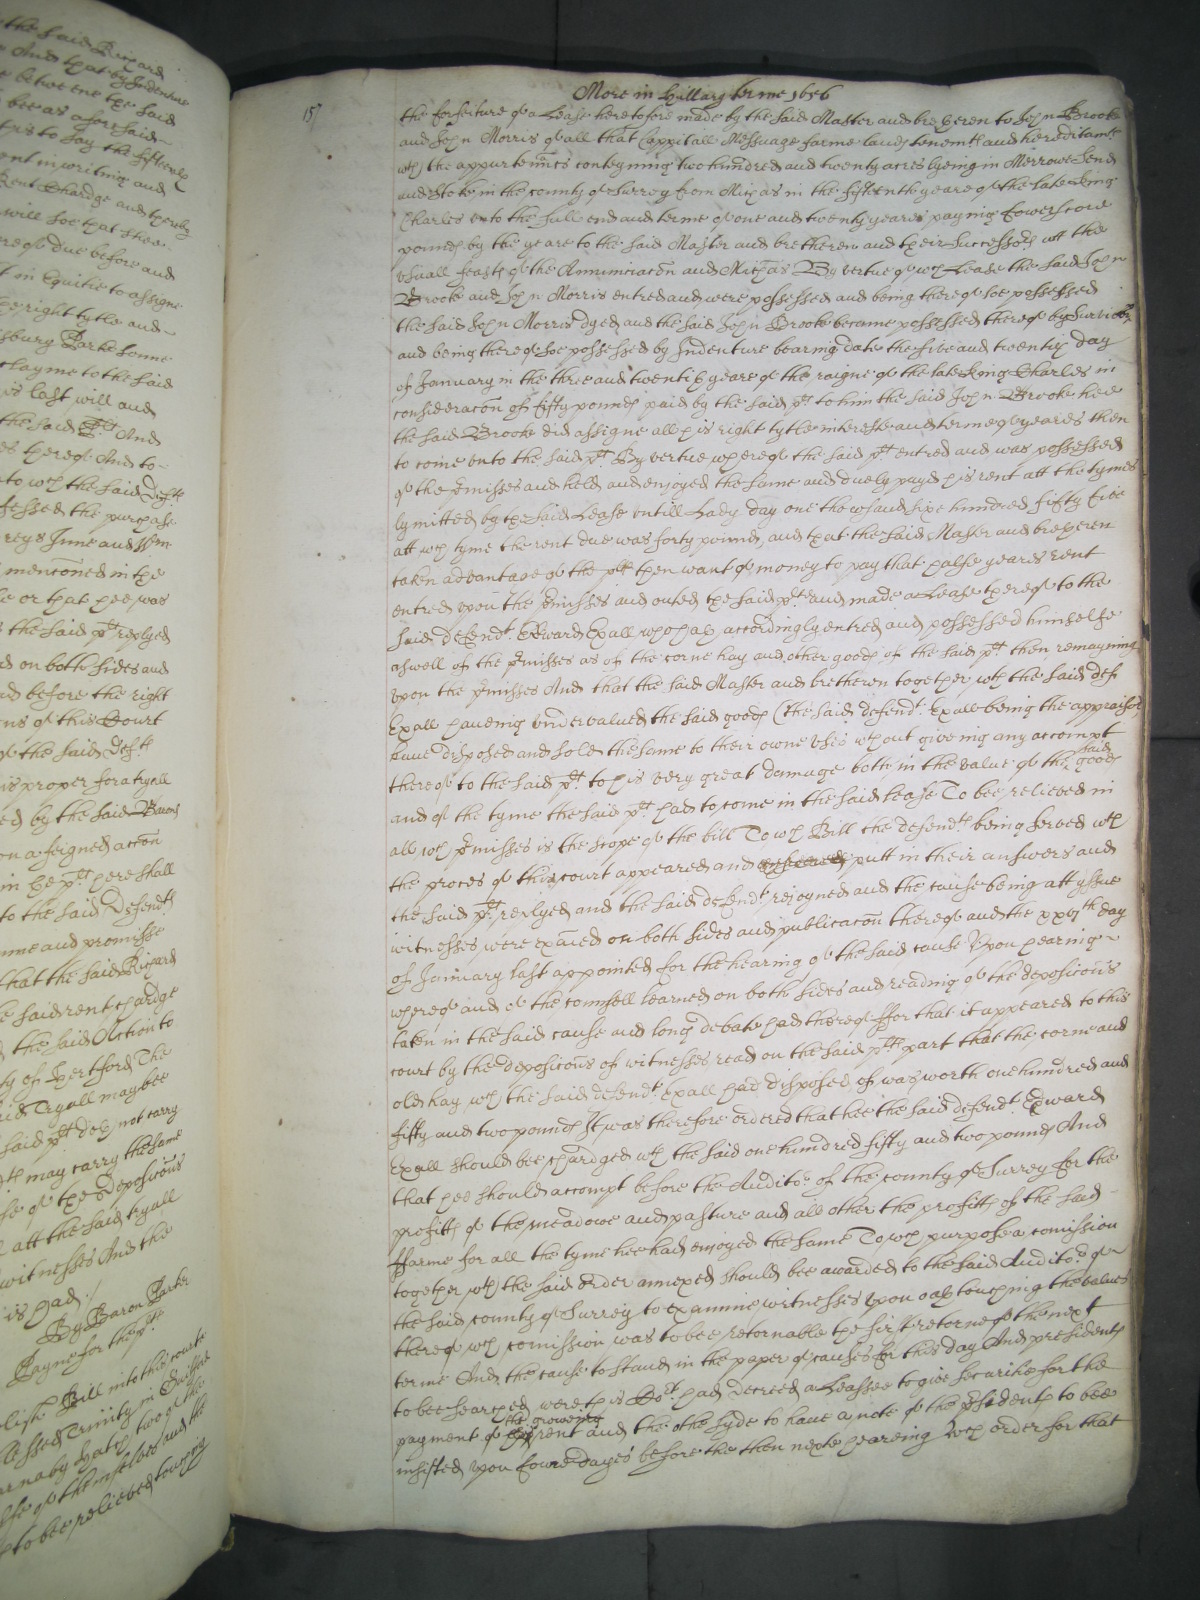 the said Richard
And that by Indenture
betweene the said
bee as aforesaid
to say the fifteenth
in writing and
Rent Chardge and thereby
will soe that shee
due before and
in Equitie to assigne
right tytle and
sbury Parke some
clayme to the said
is last will and
the said plt And
thereof And to
to wch the said Deft
the purchase
June and Wm
mencōned in the
or that hee was
the said plt replyed
on both sides and
before the right
of this Court
the said Defts
is proper for a tryall
by the said Barons
on a feigned accōn
plt here shall
to the said Defendts
and promisse
that the said Richard
said rent chardge
the said Action to
of Hertford The
Tryall may bee
said plt doth not carry
may carry the same
of the deposicōns
att the said tryall
witnesses And the
is had
By Baron Parker
Payne for the plt
Bill into this court
blessed Trinity in Guilford
two of the
of themselves and the
to bee relieved touching
More in Hillary terme 1656
157
the forfeiture of a Lease heretofore made by the said Master and bretheren to John Brooke
and John Morris of all that Cappitall Messuage farme lands tenemts and hereditamts
wth the appurtenncs conteyning two hundred and twenty acres lyeing in Merrowe Send
and Stoke in the county of Surrey from Michas in the fifteenth yeare of the late King
Charles unto the full end and terme of one and twenty yeares paying fowerscore
pounds by the yeare to the said Master and bretheren and their Successors att the
usuall feasts of the Annunciacōn and Michas By vertue of wch Lease the said John
Brooke and John Morris entred and were possessed and being thereof soe possessed
the said John Morris dyed and the said John Brooke became possessed thereof by Survivor
and being thereof soe possessed by Indenture bearing date the five and twentieth day
of January in the three and twentieth yeare of the raigne of the late King Charles in
consideracōn of fifty pounds paid by the said plt to him the said John Brooke hee
the said Brooke did assigne all his right tytle interest and terme of yeares then
to come unto the said plt By vertue whereof the said plt entred and was possessed
of the p̄misses and held and enjoyed the same and duely payd his rent att the tymes
lymitted by the said Lease untill Lady day one thowsand sixe hundred fifty five
att wch tyme the rent due was forty pounds, and that the said Master and bretheren
taken advantage of the plts then want of money to pay that halfe yeares rent
entred upon the p̄misses and outed the said plt and made a Lease thereof to the
said defendt Edward Exall who hath accordingly entred and possessed himselfe
aswell of the p̄misses as of the corne hay and other goods of the said plt then remayning
upon the p̄misses And that the said Master and bretheren together wth the said deft
Exall haveing undervalued the said goods (the said defendt Exall being the appraisor)
have disposed and sold the same to their owne uses wthout giveing any accompt
thereof to the said plt to his very great damage both in the value of the said goods
and of the tyme the said plt had to come in the said lease To bee relieved in
all wch p̄misses is the scope of the bill To wch Bill the defendts being served wth
the proces of this court appeared and putt in their answers and
the said plt replyed and the said defendts rejoyned and the cause being att yssue
witnesses were exāīed on both sides and publicacōn thereof and the xxvjth day
of January last appointed for the hearing of the said cause Upon hearing
whereof and of the counsell learned on both sides and reading of the deposicōns
taken in the said cause and long debate had thereof ffor that it appeared to this
court by the deposicōns of witnesses read on the said plts part that the corne and
old hay wch the said defendt Exall had disposed of was worth one hundred and
fifty and two pounds It was therefore ordered that hee the said defendt Edward
Exall should bee chardged wth the said one hundred fifty and two pounds And
that hee should accompt before the Auditor of the county of Surrey for the
profitts of the meadowe and pasture and all other the profitts of the said
ffarme for all the tyme hee had enjoyed the same To wch purpose a comission
together wth the said Order annexed should bee awarded to the said Auditor of
the said county of Surrey to examine witnesses upon oath touching the values
thereof wch comission was to bee retornable the first retorne of the next
terme And the cause to stand in the paper of causes for this day And presidents
to bee searched were this Cort had decreed a Leassee to give securitie for the
payment of the groweing rent and the othe syde to have a note of the p̄sidents to bee
insisted upon foure dayes before the then next heareing wch order for that